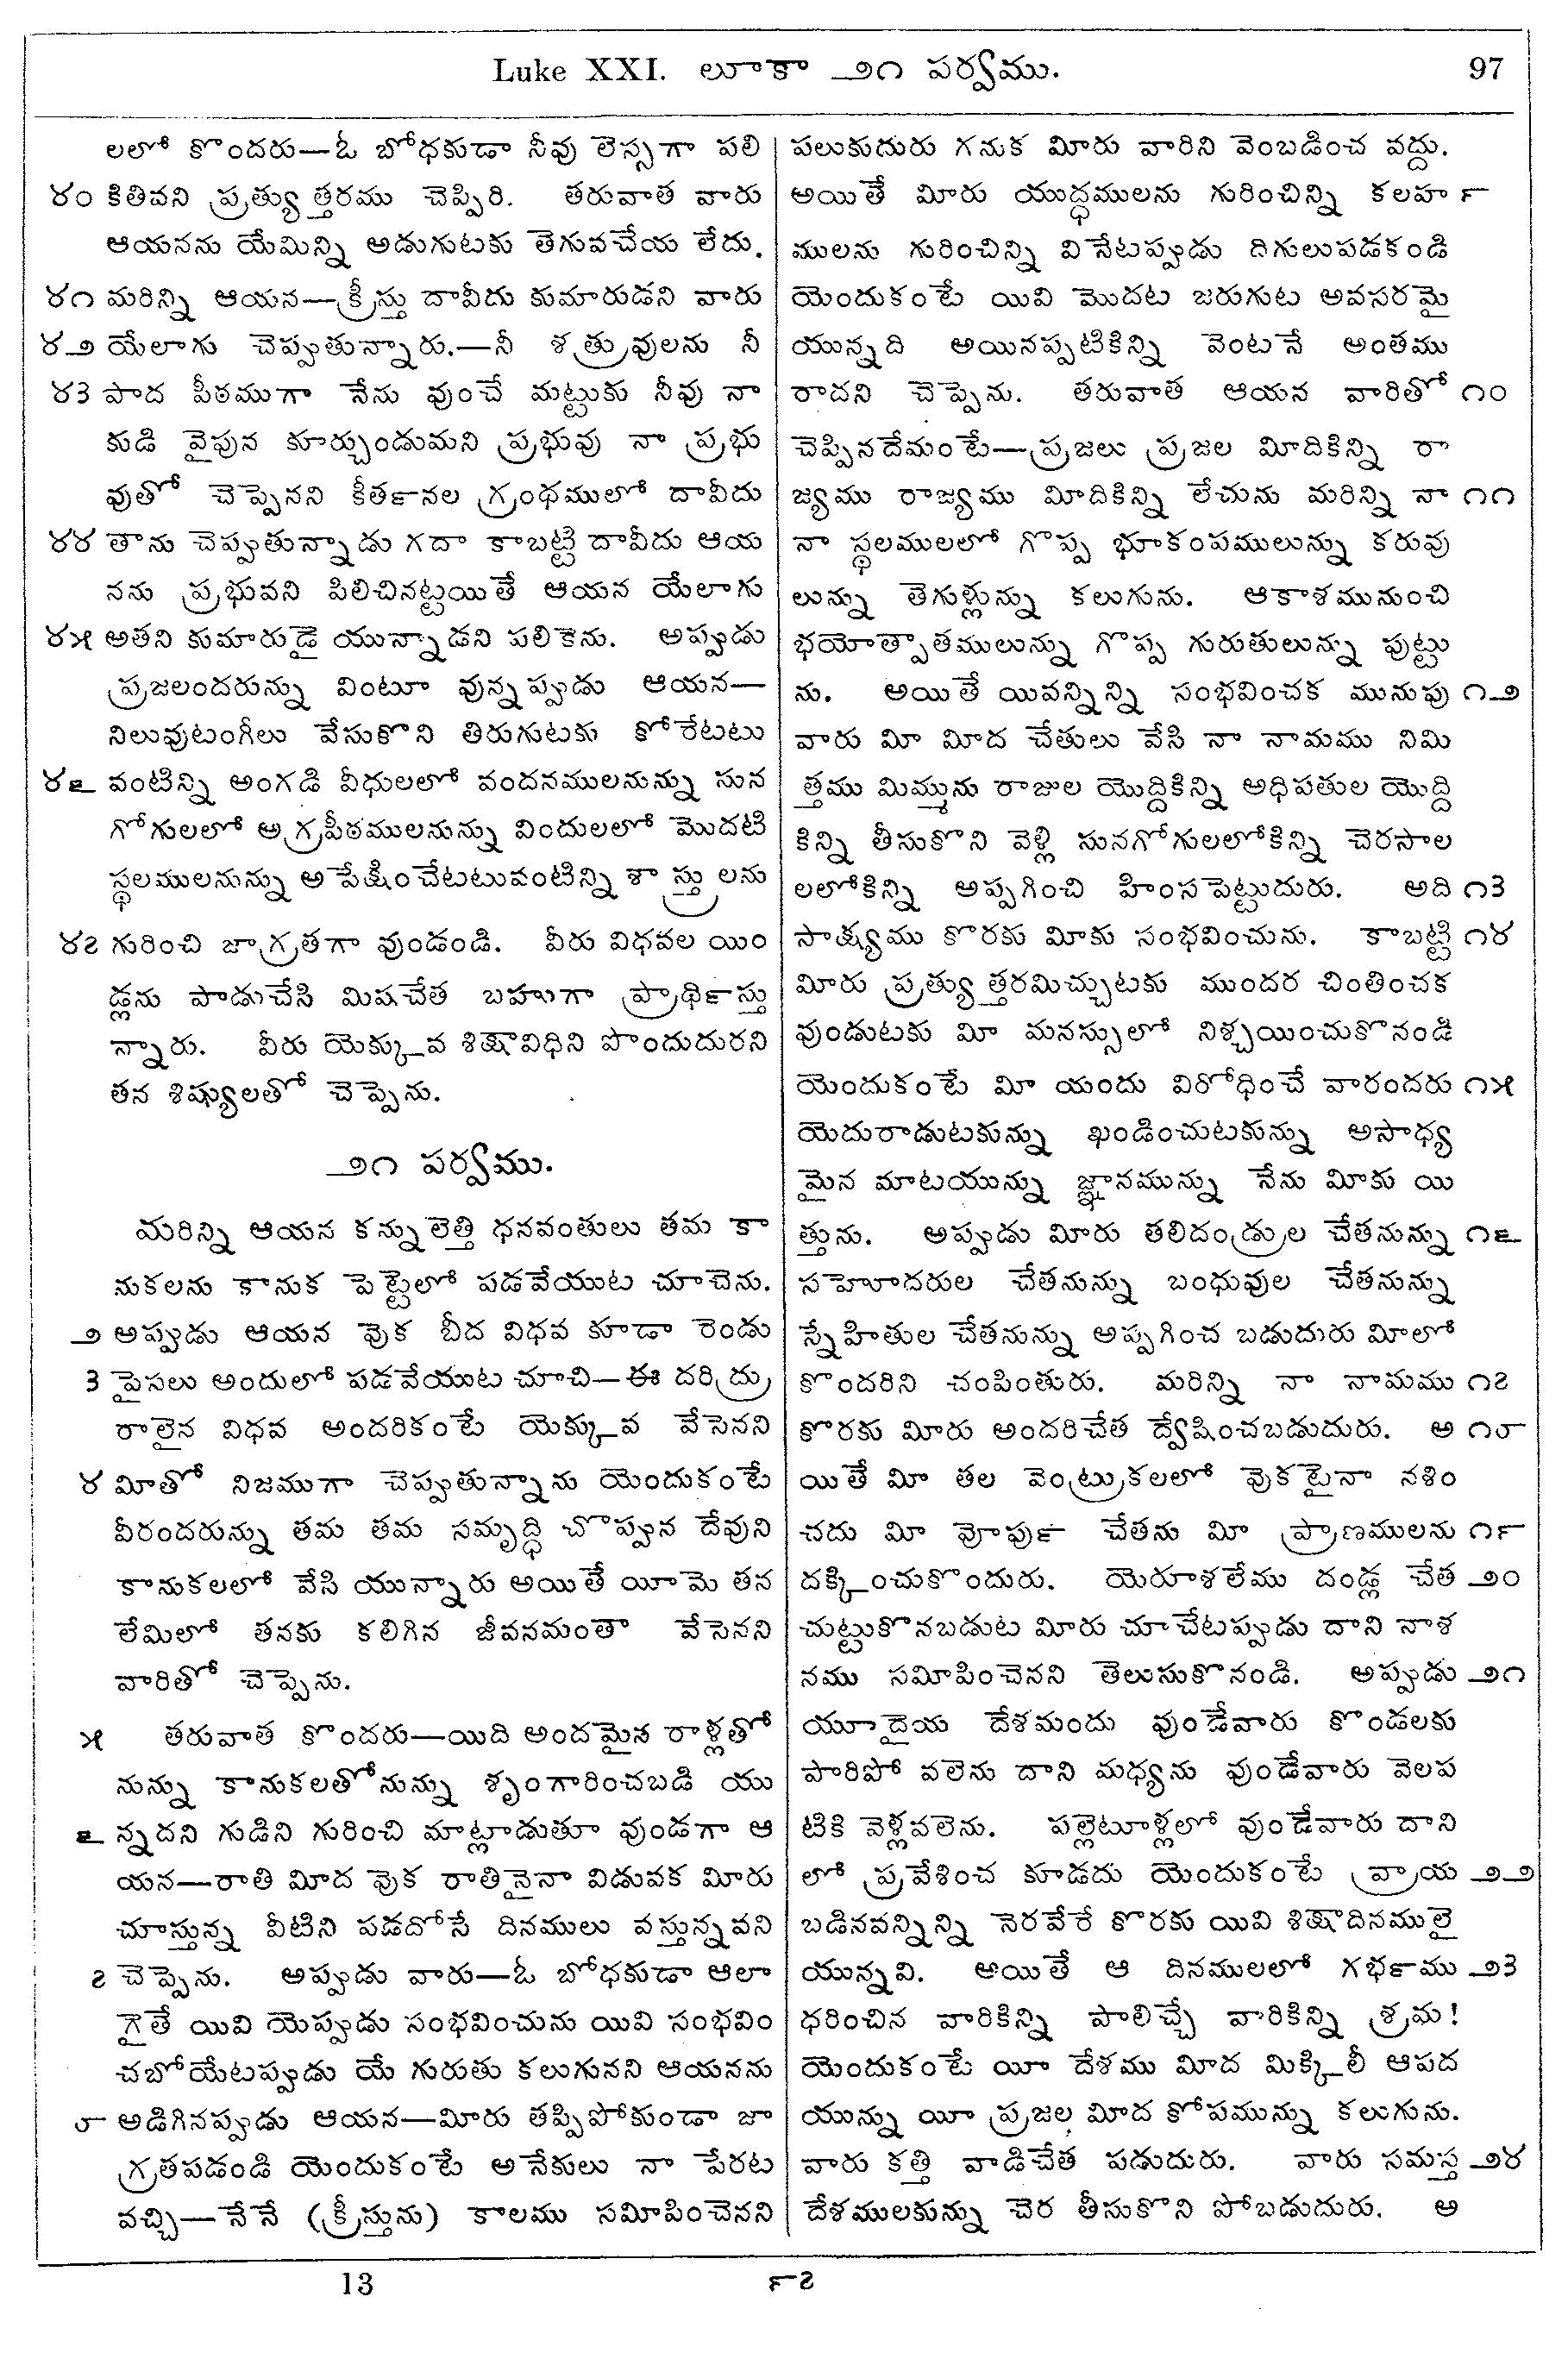 Luke XXI. లూకా ౨౧ పర్వము. 97
లలో కొందరు—ఓ బోధకుడా నీవు లెస్సగా పలి
౪౦ కితివని ప్రత్యుత్తరము చెప్పిరి. తరువాత వారు
ఆయనను యేమిన్ని అడుగుటకు తెగువచేయ లేదు.
౪౧ మరిన్ని ఆయన—క్రీస్తు దావీదు కుమారుడని వారు
౪౨ యేలాగు చెప్పుతున్నారు.—నీ శత్రువులను నీ
౪౩ పాద పీఠముగా నేను వుంచే మట్టుకు నీవు నా
కుడి వైపున కూర్చుండుమని ప్రభువు నా ప్రభు
వుతో చెప్పెనని కీర్తనల గ్రంథములో దావీదు
౪౪ తాను చెప్పుతున్నాడు గదా కాబట్టి దావీదు ఆయ
నను ప్రభువని పిలిచినట్టయితే ఆయన యేలాగు
౪౫ అతని కుమారుడై యున్నాడని పలికెను. అప్పుడు
ప్రజలందరున్ను వింటూ వున్నప్పుడు ఆయన—
నిలువుటంగీలు వేసుకొని తిరుగుటకు కోరేటటు
౪౬ వంటిన్ని అంగడి వీధులలో వందనములనున్ను సున
గోగులలో అగ్రపీఠములనున్ను విందులలో మొదటి
స్థలములనున్ను అపేక్షించేటటువంటిన్ని శాస్త్రులను
౪౭ గురించి జాగ్రతగా వుండండి. వీరు విధవల యిం
డ్లను పాడుచేసి మిషచేత బహుగా ప్రార్థిస్తు
న్నారు. వీరు యెక్కువ శిక్షావిధిని పొందుదురని
తన శిష్యులతో చెప్పెను.
౨౧ పర్వము.
మరిన్ని ఆయన కన్నులెత్తి ధనవంతులు తమ కా
నుకలను కానుక పెట్టెలో పడవేయుట చూచెను.
౨ అప్పుడు ఆయన వొక బీద విధవ కూడా రెండు
౩ పైసలు అందులో పడవేయుట చూచి—ఈ దరిద్రు
రాలైన విధవ అందరికంటే యెక్కువ వేసెనని
౪ మీతో నిజముగా చెప్పుతున్నాను యెందుకంటే
వీరందరున్ను తమ తమ సమృద్ధి చొప్పున దేవుని
కానుకలలో వేసి యున్నారు అయితే యీమె తన
లేమిలో తనకు కలిగిన జీవనమంతా వేసెనని
వారితో చెప్పెను.
౫ తరువాత కొందరు—యిది అందమైన రాళ్లతో
నున్ను కానుకలతోనున్ను శృంగారించబడి యు
౬ న్నదని గుడిని గురించి మాట్లాడుతూ వుండగా ఆ
యన—రాతి మీద వొక రాతినైనా విడువక మీరు
చూస్తున్న వీటిని పడదోసే దినములు వస్తున్నవని
౭ చెప్పెను. అప్పుడు వారు—ఓ బోధకుడా ఆలా
గైతే యివి యెప్పుడు సంభవించును యివి సంభవిం
చబోయేటప్పుడు యే గురుతు కలుగునని ఆయనను
౮ అడిగినప్పుడు ఆయన—మీరు తప్పిపోకుండా జా
గ్రతపడండి యెందుకంటే అనేకులు నా పేరట
వచ్చి—నేనే (క్రీస్తును) కాలము సమీపించెనని
పలుకుదురు గనుక మీరు వారిని వెంబడించ వద్దు.
అయితే మీరు యుద్ధములను గురించిన్ని కలహ ౯
ములను గురించిన్ని వినేటప్పుడు దిగులుపడకండి
యెందుకంటే యివి మొదట జరుగుట అవసరమై
యున్నది అయినప్పటికిన్ని వెంటనే అంతము
రాదని చెప్పెను. తరువాత ఆయన వారితో ౧౦
చెప్పినదేమంటే—ప్రజలు ప్రజల మీదికిన్ని రా
జ్యము రాజ్యము మీదికిన్ని లేచును మరిన్ని నా ౧౧
నా స్థలములలో గొప్ప భూకంపములున్ను కరువు
లున్ను తెగుళ్లున్ను కలుగును. ఆకాశమునుంచి
భయోత్పాతములున్ను గొప్ప గురుతులున్ను పుట్టు
ను. అయితే యివన్నిన్ని సంభవించక మునుపు ౧౨
వారు మీ మీద చేతులు వేసి నా నామము నిమి
త్తము మిమ్మును రాజుల యొద్దికిన్ని అధిపతుల యొద్ది
కిన్ని తీసుకొని వెళ్లి సునగోగులలోకిన్ని చెరసాల
లలోకిన్ని అప్పగించి హింసపెట్టుదురు. అది ౧౩
సాక్ష్యము కొరకు మీకు సంభవించును. కాబట్టి ౧౪
మీరు ప్రత్యుత్తరమిచ్చుటకు ముందర చింతించక
వుండుటకు మీ మనస్సులో నిశ్చయించుకొనండి
యెందుకంటే మీ యందు విరోధించే వారందరు ౧౫
యెదురాడుటకున్ను ఖండించుటకున్ను అసాధ్య
మైన మాటయున్ను జ్ఞానమున్ను నేను మీకు యి
త్తును. అప్పుడు మీరు తలిదండ్రుల చేతనున్ను ౧౬
సహోదరుల చేతనున్ను బంధువుల చేతనున్ను
స్నేహితుల చేతనున్ను అప్పగించ బడుదురు మీలో
కొందరిని చంపింతురు. మరిన్ని నా నామము ౧౭
కొరకు మీరు అందరిచేత ద్వేషించబడుదురు. అ ౧౮
యితే మీ తల వెంట్రుకలలో వొకటైనా నశిం
చదు మీ వోర్పు చేతను మీ ప్రాణములను ౧౯
దక్కించుకొందురు. యెరూశలేము దండ్ల చేత ౨౦
చుట్టుకొనబడుట మీరు చూచేటప్పుడు దాని నాశ
నము సమీపించెనని తెలుసుకొనండి. అప్పుడు ౨౧
యూదైయ దేశమందు వుండేవారు కొండలకు
పారిపో వలెను దాని మధ్యను వుండేవారు వెలప
టికి వెళ్లవలెను. పల్లెటూళ్లలో వుండేవారు దాని
లో ప్రవేశించ కూడదు యెందుకంటే వ్రాయ ౨౨
బడినవన్నిన్ని నెరవేరే కొరకు యివి శిక్షాదినములై
యున్నవి. అయితే ఆ దినములలో గర్భము ౨౩
ధరించిన వారికిన్ని పాలిచ్చే వారికిన్ని శ్రమ!
యెందుకంటే యీ దేశము మీద మిక్కిలీ ఆపద
యున్ను యీ ప్రజల మీద కోపమున్ను కలుగును.
వారు కత్తి వాడిచేత పడుదురు. వారు సమస్త ౨౪
దేశములకున్ను చెర తీసుకొని పోబడుదురు. అ
13 ౯౭